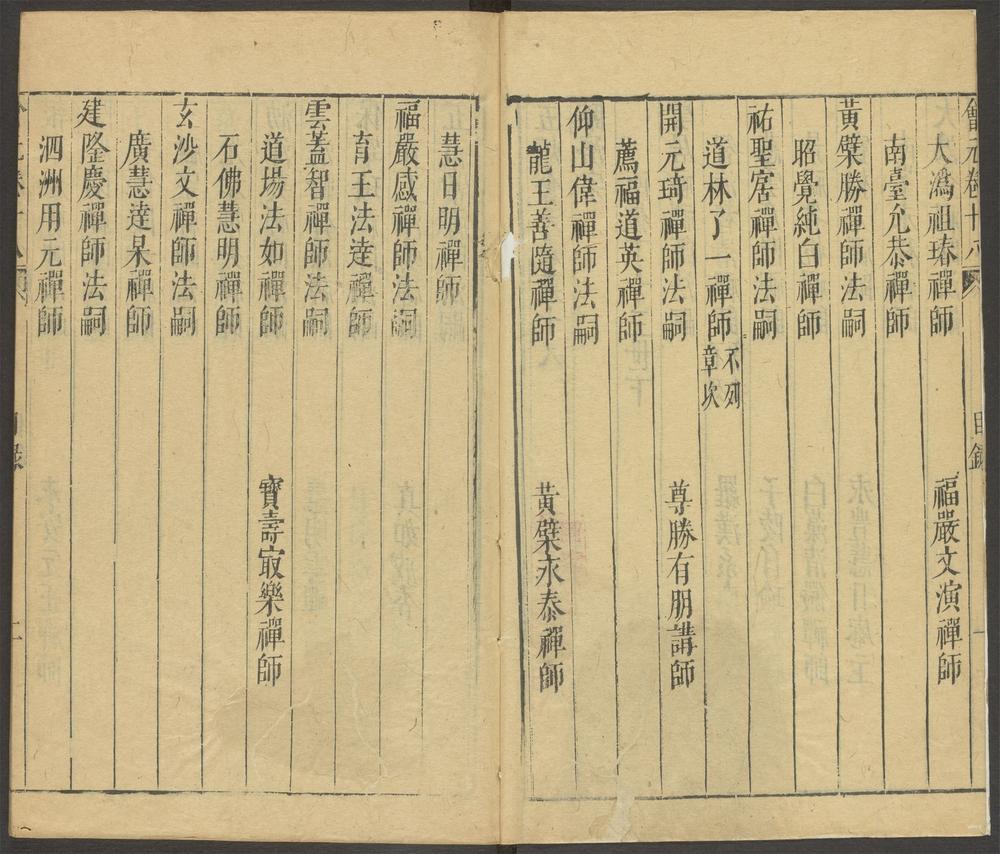 會元卷十八 目錄 一
大溈祖瑃禪師 福嚴文演禪師
南臺允恭禪師
黃檗勝禪師法嗣
昭覺純白禪師
祐聖窟禪師法嗣
道林了一禪師 不列章次
開元琦禪師法嗣
薦福道英禪師 尊勝有朋講師
仰山偉禪師法嗣
龍王善隨禪師 黃檗永泰禪師
慧日明禪師
福嚴感禪師法嗣
育王法達禪師
雲蓋智禪師法嗣
道場法如禪師 寶壽㝡樂禪師
石佛慧明禪師
玄沙文禪師法嗣
廣慧達杲禪師
建隆慶禪師法嗣
泗洲用元禪師